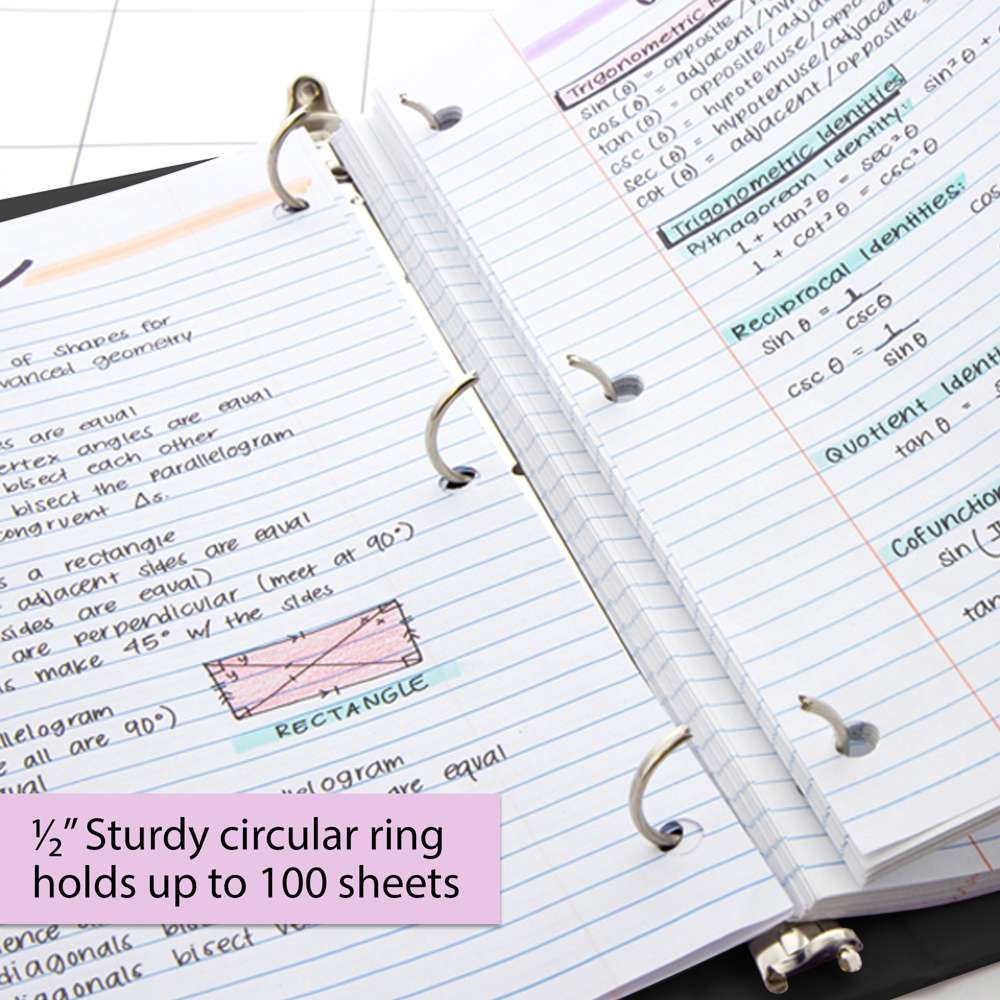 of shapes for
advanced geometry
es are equal
vertex angles are equal
bisect each other
bisect the parallelogram
congruent Δs.
s a rectangle
adjacent sides are equal
sides are equal)
are perpendicular (meet at 90°)
s make 45° w/ the sides
RECTANGLE
allelogram
e all are 90°)
ual
elogram
are equal
½” Sturdy circular ring
holds up to 100 sheets
diagonals
diagonals bisect
Trigonometric
sin (θ) = opposite/
cos (θ) = adjacent/hy
tan (θ) = opposite/adjac
csc (θ) = hypotenuse/oppo
sec (θ) = hypotenuse/adjacen
cot (θ) = adjacent/opposite
Trigonometric Identities
Pythagorean Identity:
sin² θ +
1 + tan² θ = sec² θ
1 + cot² θ = csc² θ
Reciprocal Identities:
sin θ = 1
cscθ
cos
csc θ = 1
sinθ
Quotient Identi
tan θ =
Cofunction
sin (
tan